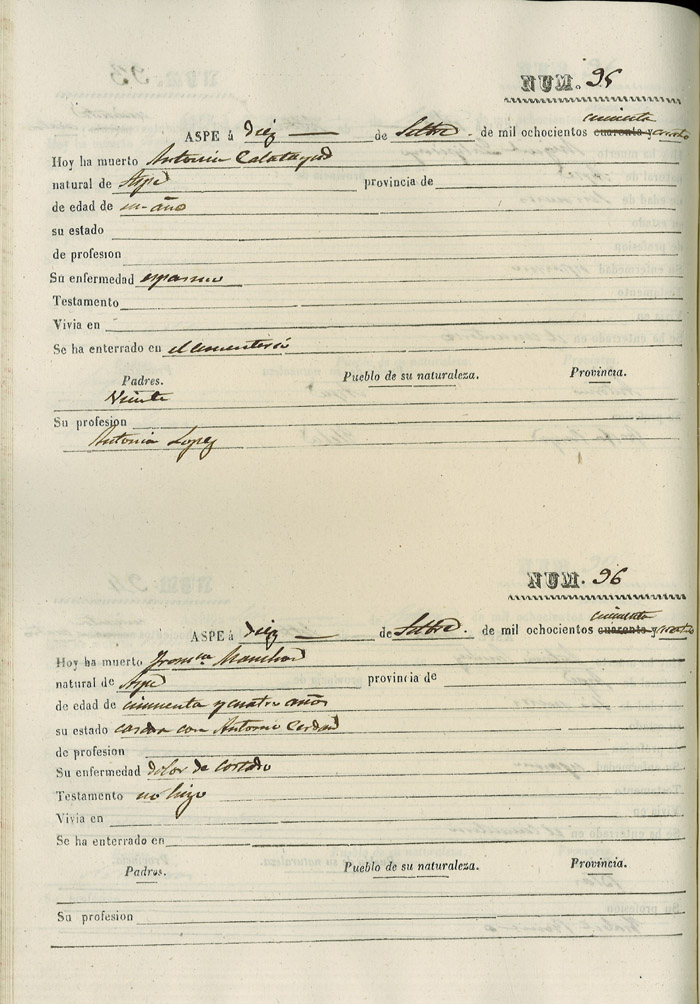 NUM. 95
cincuenta
ASPE á Diez de Setbre. de mil ochocientos cuarenta y cuatro
Hoy ha muerto Antonio Calatayud
natural de Aspe provincia de
de edad de un año
su estado
de profesion
Su enfermedad espasmo
Testamento
Vivia en
Se ha enterrado en el cementerio
Padres. Pueblo de su naturaleza. Provincia.
Vicente
Su profesion
Antonia Lopez
NUM. 96
cincuenta
ASPE á Diez de Setbre. de mil ochocientos cuarenta y cuatro
Hoy ha muerto
natural de Aspe provincia de
de edad de cincuenta y cuatro años
su estado casada con Antonio Cerdan
de profesion
Su enfermedad dolor de costado
Testamento no hizo
Vivia en
Se ha enterrado en
Padres. Pueblo de su naturaleza. Provincia.
Su profesion